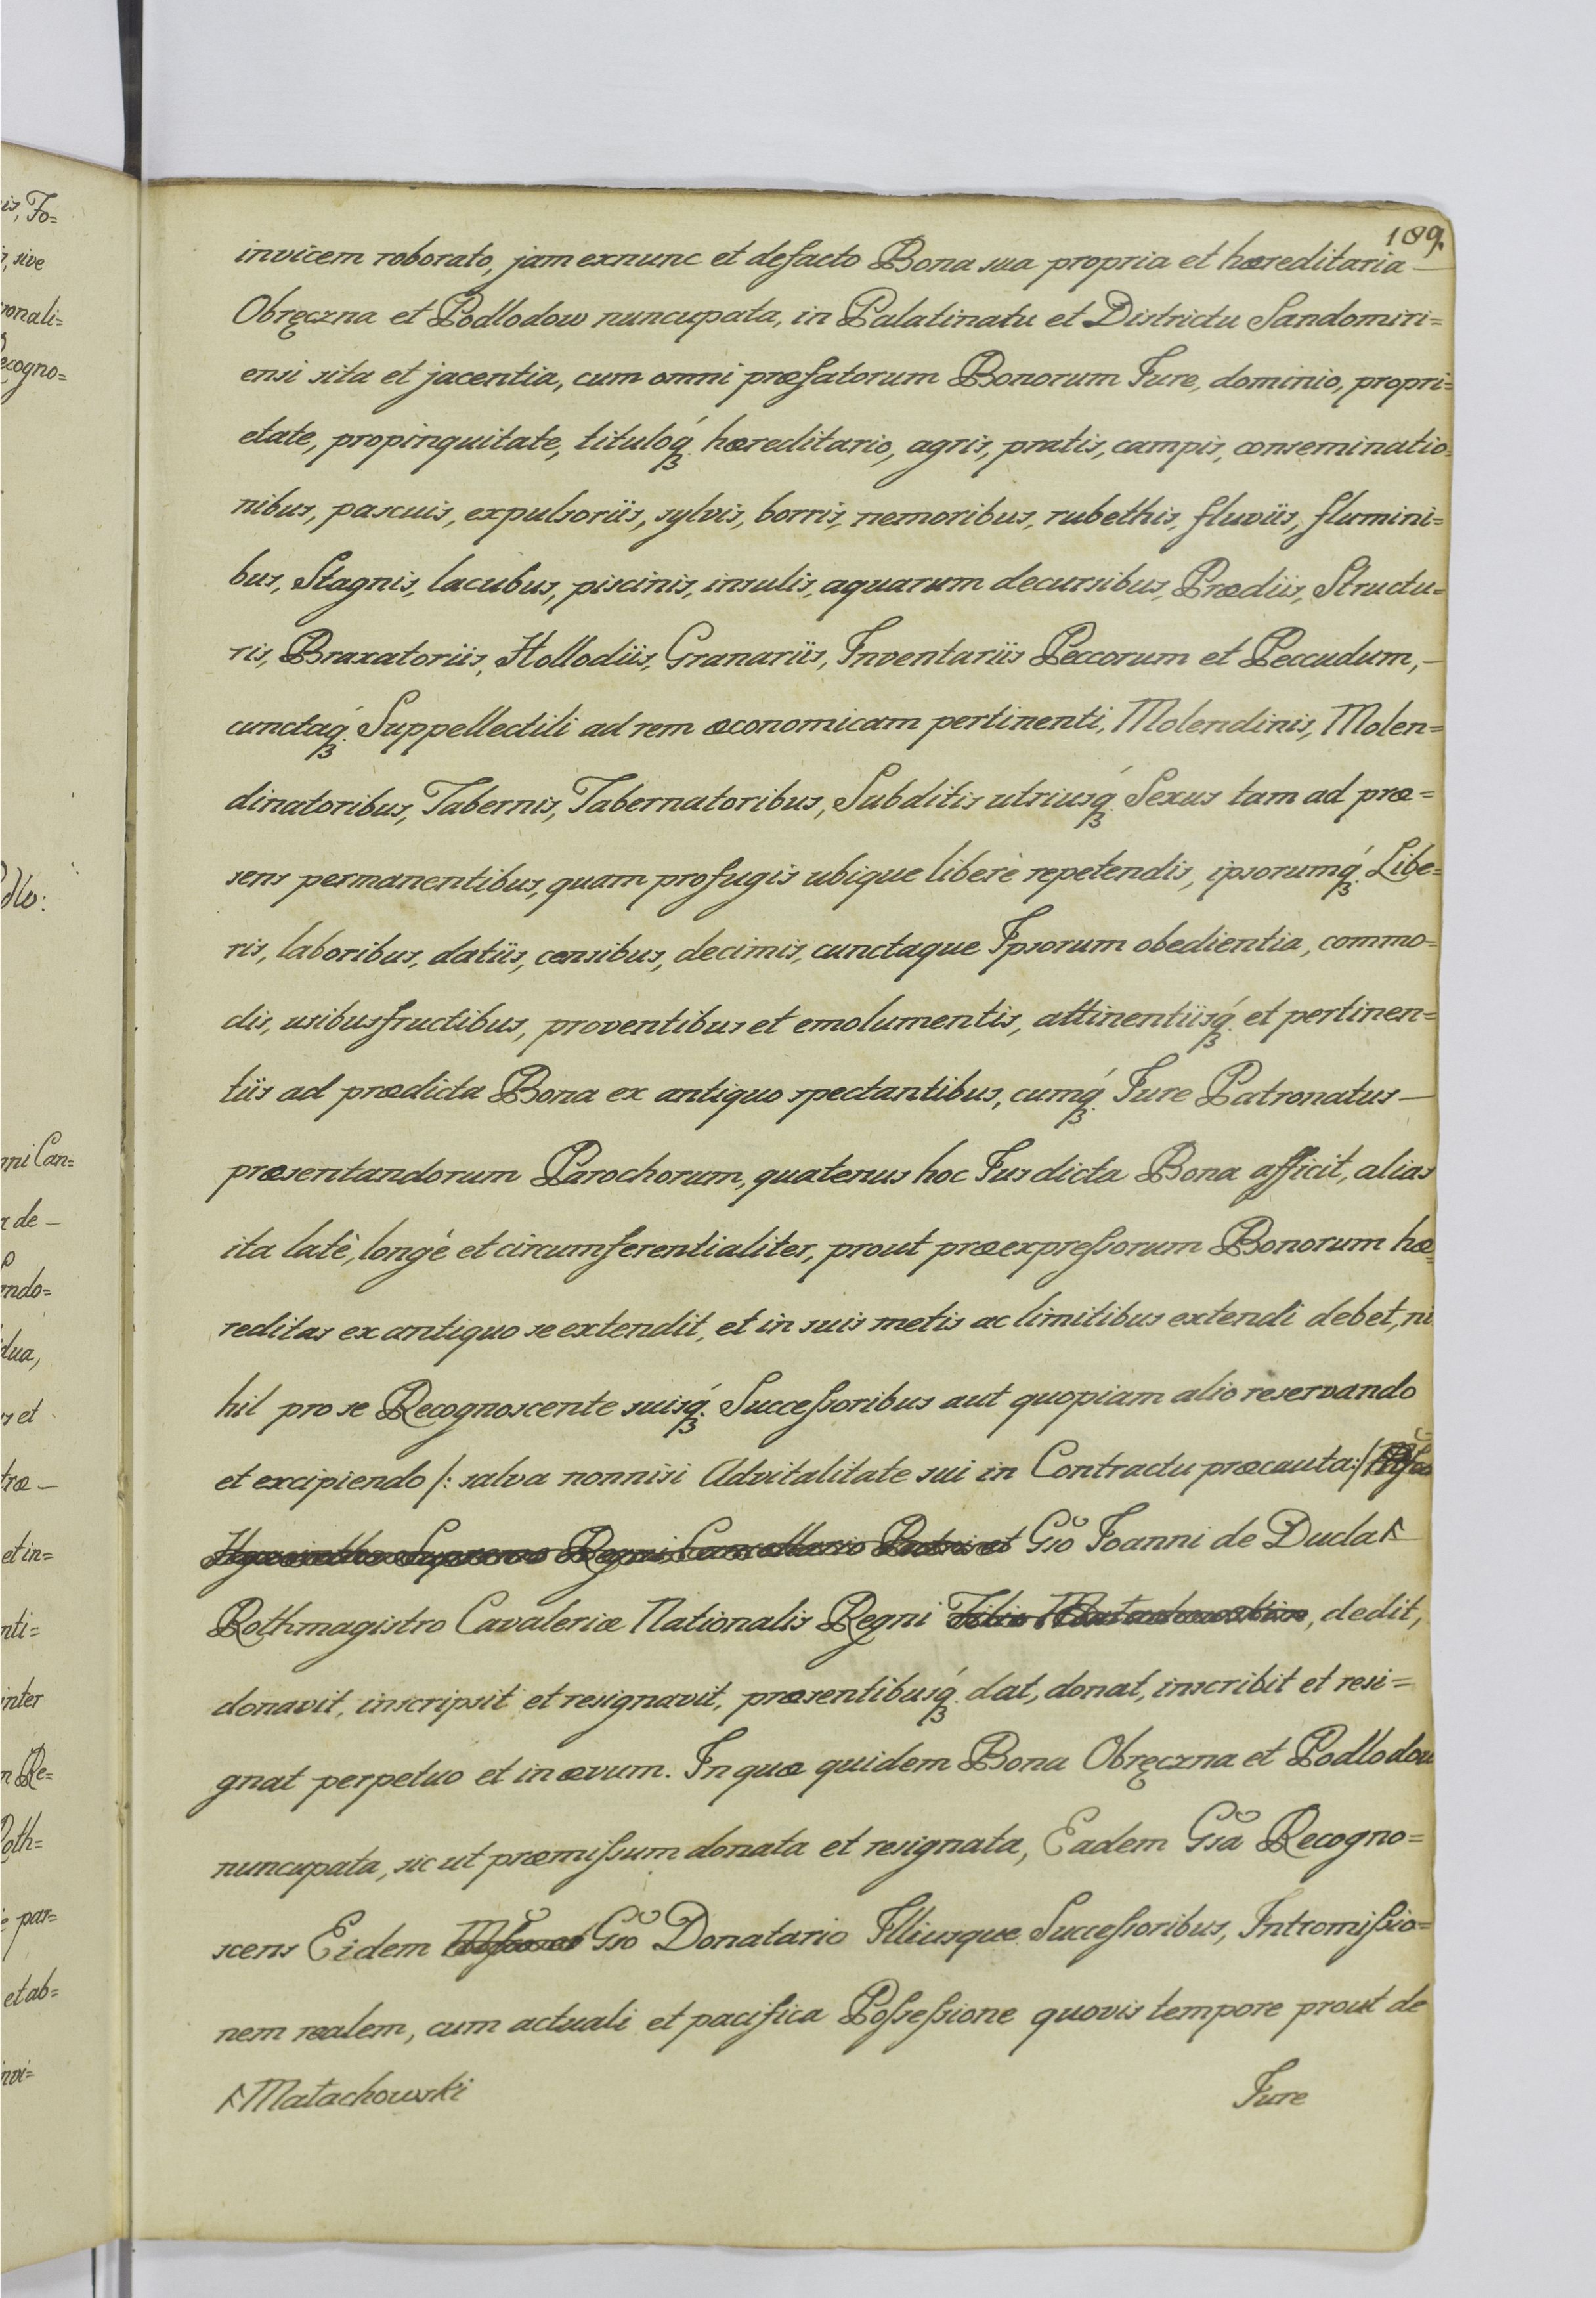 189.
invicem roborato, jam exnunc et defacto Bona sua propria et hæreditaria —
Obręczna et Podlodow nuncupata, in Palatinatu et Districtu Sandomiri=
ensi sita et jacentia, cum omni præfatorum Bonorum Jure, dominio, propri=
etate, propinquitate, tituloq́ꝫ hæreditario, agris, pratis, campis, conseminatio=
nibus, pascuis, expulsoriis, sylvis, borris, nemoribus, rubethis, fluviis, flumini=
bus, Stagnis, lacubus, piscinis, insulis, aquarum decursibus, Prædiis, Structu=
ris, Braxatoriis, Hollodiis, Granariis, Inventariis Peccorum et Peccudum, —
cunctaq́ꝫ Suppellectili ad rem œconomicam pertinenti, Molendinis, Molen=
dinatoribus, Tabernis, Tabernatoribus, Subditis utriusq́ꝫ Sexus tam ad præ=
sens permanentibus, quam profugis ubique liberè repetendis, ipsorumq́ꝫ Libe=
ris, laboribus, datiis, censibus, decimis, cunctaque Ipsorum obedientia, commo=
dis, usibusfructibus, proventibus et emolumentis, attinentiisq́ꝫ et pertinen=
tiis ad prædicta Bona ex antiquo spectantibus, cumq́ꝫ Jure Patronatus —
præsentandorum Parochorum, quatenus hoc Jus dicta Bona afficit, alias
ita latè, longè et circumferentialiter, prout præexpreſsorum Bonorum hæ=
reditas ex antiquo se extendit, et in suis metis ac limitibus extendi debet, ni
hil pro se Recognoscente suisq́ꝫ Succeſsoribus aut quopiam alio reservando
et excipiendo /: salva nonnisi Advitalitate sui in Contractu præcauta :/
Hyacintho Supremo Regni Cancellario Patri et Gsõ Joanni de Duda
Rothmagistro Cavaleriæ Nationalis Regni Filio Małachowskim, dedit,
donavit, inscripsit et resignavit, præsentibusq́ꝫ dat, donat, inscribit et resi=
gnat perpetuo et in ævum. In quæ quidem Bona Obręczna et Podlodow
nuncupata, sic ut præmiſsum donata et resignata, Eadem Gsã Recogno=
scens Eidem Gsõ Donatario Illiusque Succeſsoribus, Intromiſsio=
nem realem, cum actuali et pacifica Poſseſsione quovis tempore prout de
Małachowski
Jure
is, Fo=
sive
ronali=
ecogno=
nni Can=
de —
ando=
dua,
et
træ —
et in=
nti=
inter
Re=
Roth=
par=
et ab=
invi=